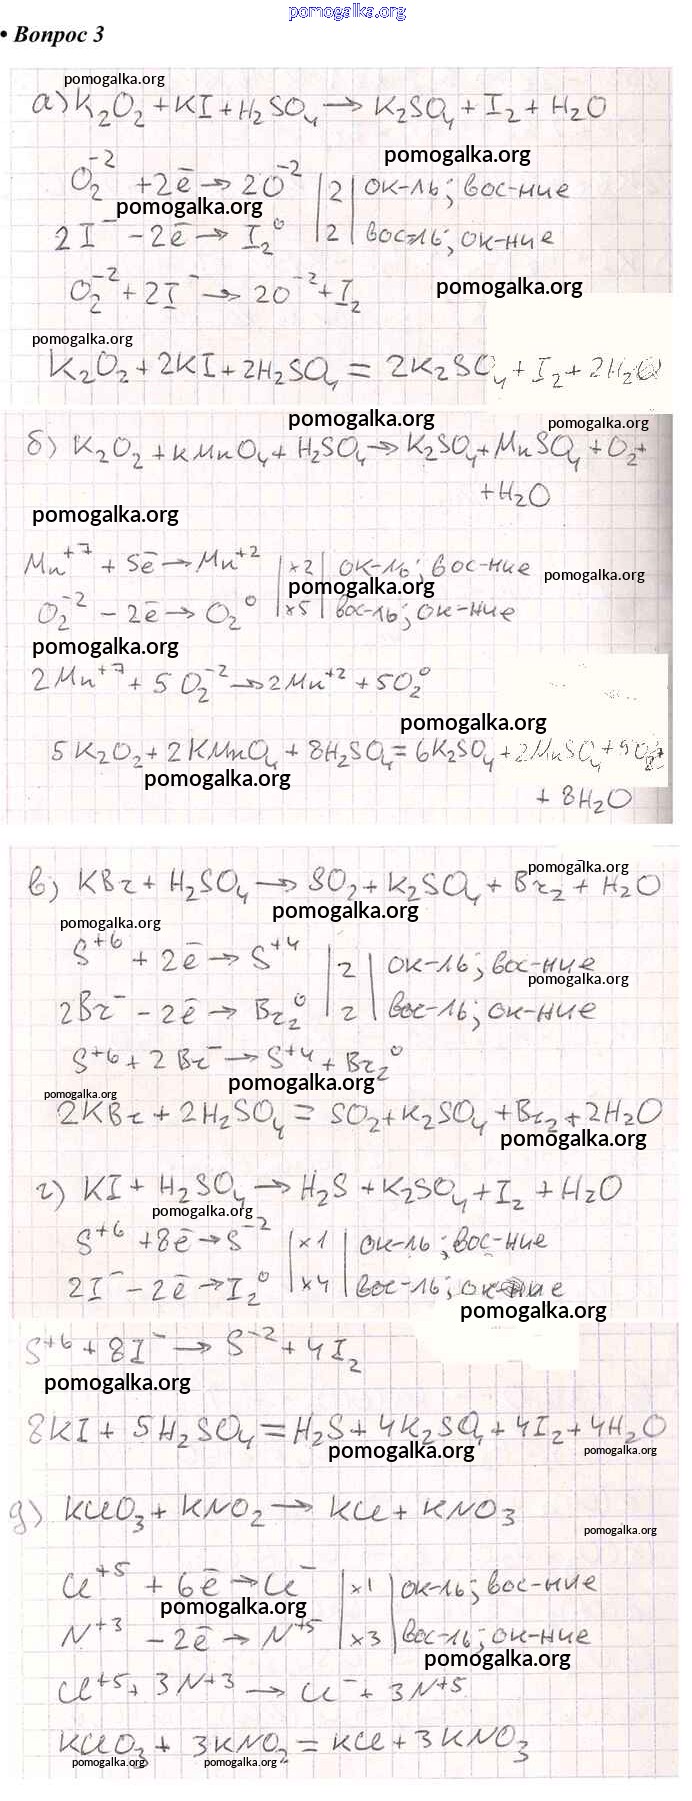 pomogalka.org
• Вопрос 3
pomogalka.org
а) K₂O₂ + KI + H₂SO₄ → K₂SO₄ + I₂ + H₂O
pomogalka.org
O₂⁻² + 2ē → 2O⁻² | 2 | ок-ль; вос-ние
pomogalka.org
2I⁻ - 2ē → I₂⁰ | 2 | вос-ль; ок-ние
pomogalka.org
O₂⁻² + 2I⁻ → 2O⁻² + I₂
pomogalka.org
K₂O₂ + 2KI + 2H₂SO₄ = 2K₂SO₄ + I₂ + 2H₂O
pomogalka.org
pomogalka.org
б) K₂O₂ + KMnO₄ + H₂SO₄ → K₂SO₄ + MnSO₄ + O₂ +
+ H₂O
pomogalka.org
Mn⁺⁷ + 5ē → Mn⁺² | ×2 | ок-ль; вос-ние
pomogalka.org
pomogalka.org
O₂⁻² - 2ē → O₂⁰ | ×5 | вос-ль; ок-ние
pomogalka.org
2Mn⁺⁷ + 5O₂⁻² → 2Mn⁺² + 5O₂⁰
pomogalka.org
5K₂O₂ + 2KMnO₄ + 8H₂SO₄ = 6K₂SO₄ + 2MnSO₄ + 5O₂ +
pomogalka.org
+ 8H₂O
pomogalka.org
в) KBr + H₂SO₄ → SO₂ + K₂SO₄ + Br₂ + H₂O
pomogalka.org
pomogalka.org
S⁺⁶ + 2ē → S⁺⁴ | 2 | ок-ль; вос-ние
pomogalka.org
2Br⁻ - 2ē → Br₂⁰ | 2 | вос-ль; ок-ние
S⁺⁶ + 2Br⁻ → S⁺⁴ + Br₂⁰
pomogalka.org
pomogalka.org
2KBr + 2H₂SO₄ = SO₂ + K₂SO₄ + Br₂ + 2H₂O
pomogalka.org
г) KI + H₂SO₄ → H₂S + K₂SO₄ + I₂ + H₂O
pomogalka.org
S⁺⁶ + 8ē → S⁻² | ×1 | ок-ль; вос-ние
2I⁻ - 2ē → I₂⁰ | ×4 | вос-ль; ок-ние
pomogalka.org
S⁺⁶ + 8I⁻ → S⁻² + 4I₂
pomogalka.org
8KI + 5H₂SO₄ = H₂S + 4K₂SO₄ + 4I₂ + 4H₂O
pomogalka.org
pomogalka.org
д) KClO₃ + KNO₂ → KCl + KNO₃
pomogalka.org
Cl⁺⁵ + 6ē → Cl⁻ | ×1 | ок-ль; вос-ние
pomogalka.org
N⁺³ - 2ē → N⁺⁵ | ×3 | вос-ль; ок-ние
pomogalka.org
Cl⁺⁵ + 3N⁺³ → Cl⁻ + 3N⁺⁵
KClO₃ + 3KNO₂ = KCl + 3KNO₃
pomogalka.org pomogalka.org